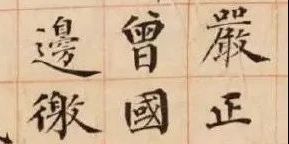 嚴正
曾國
邊徼